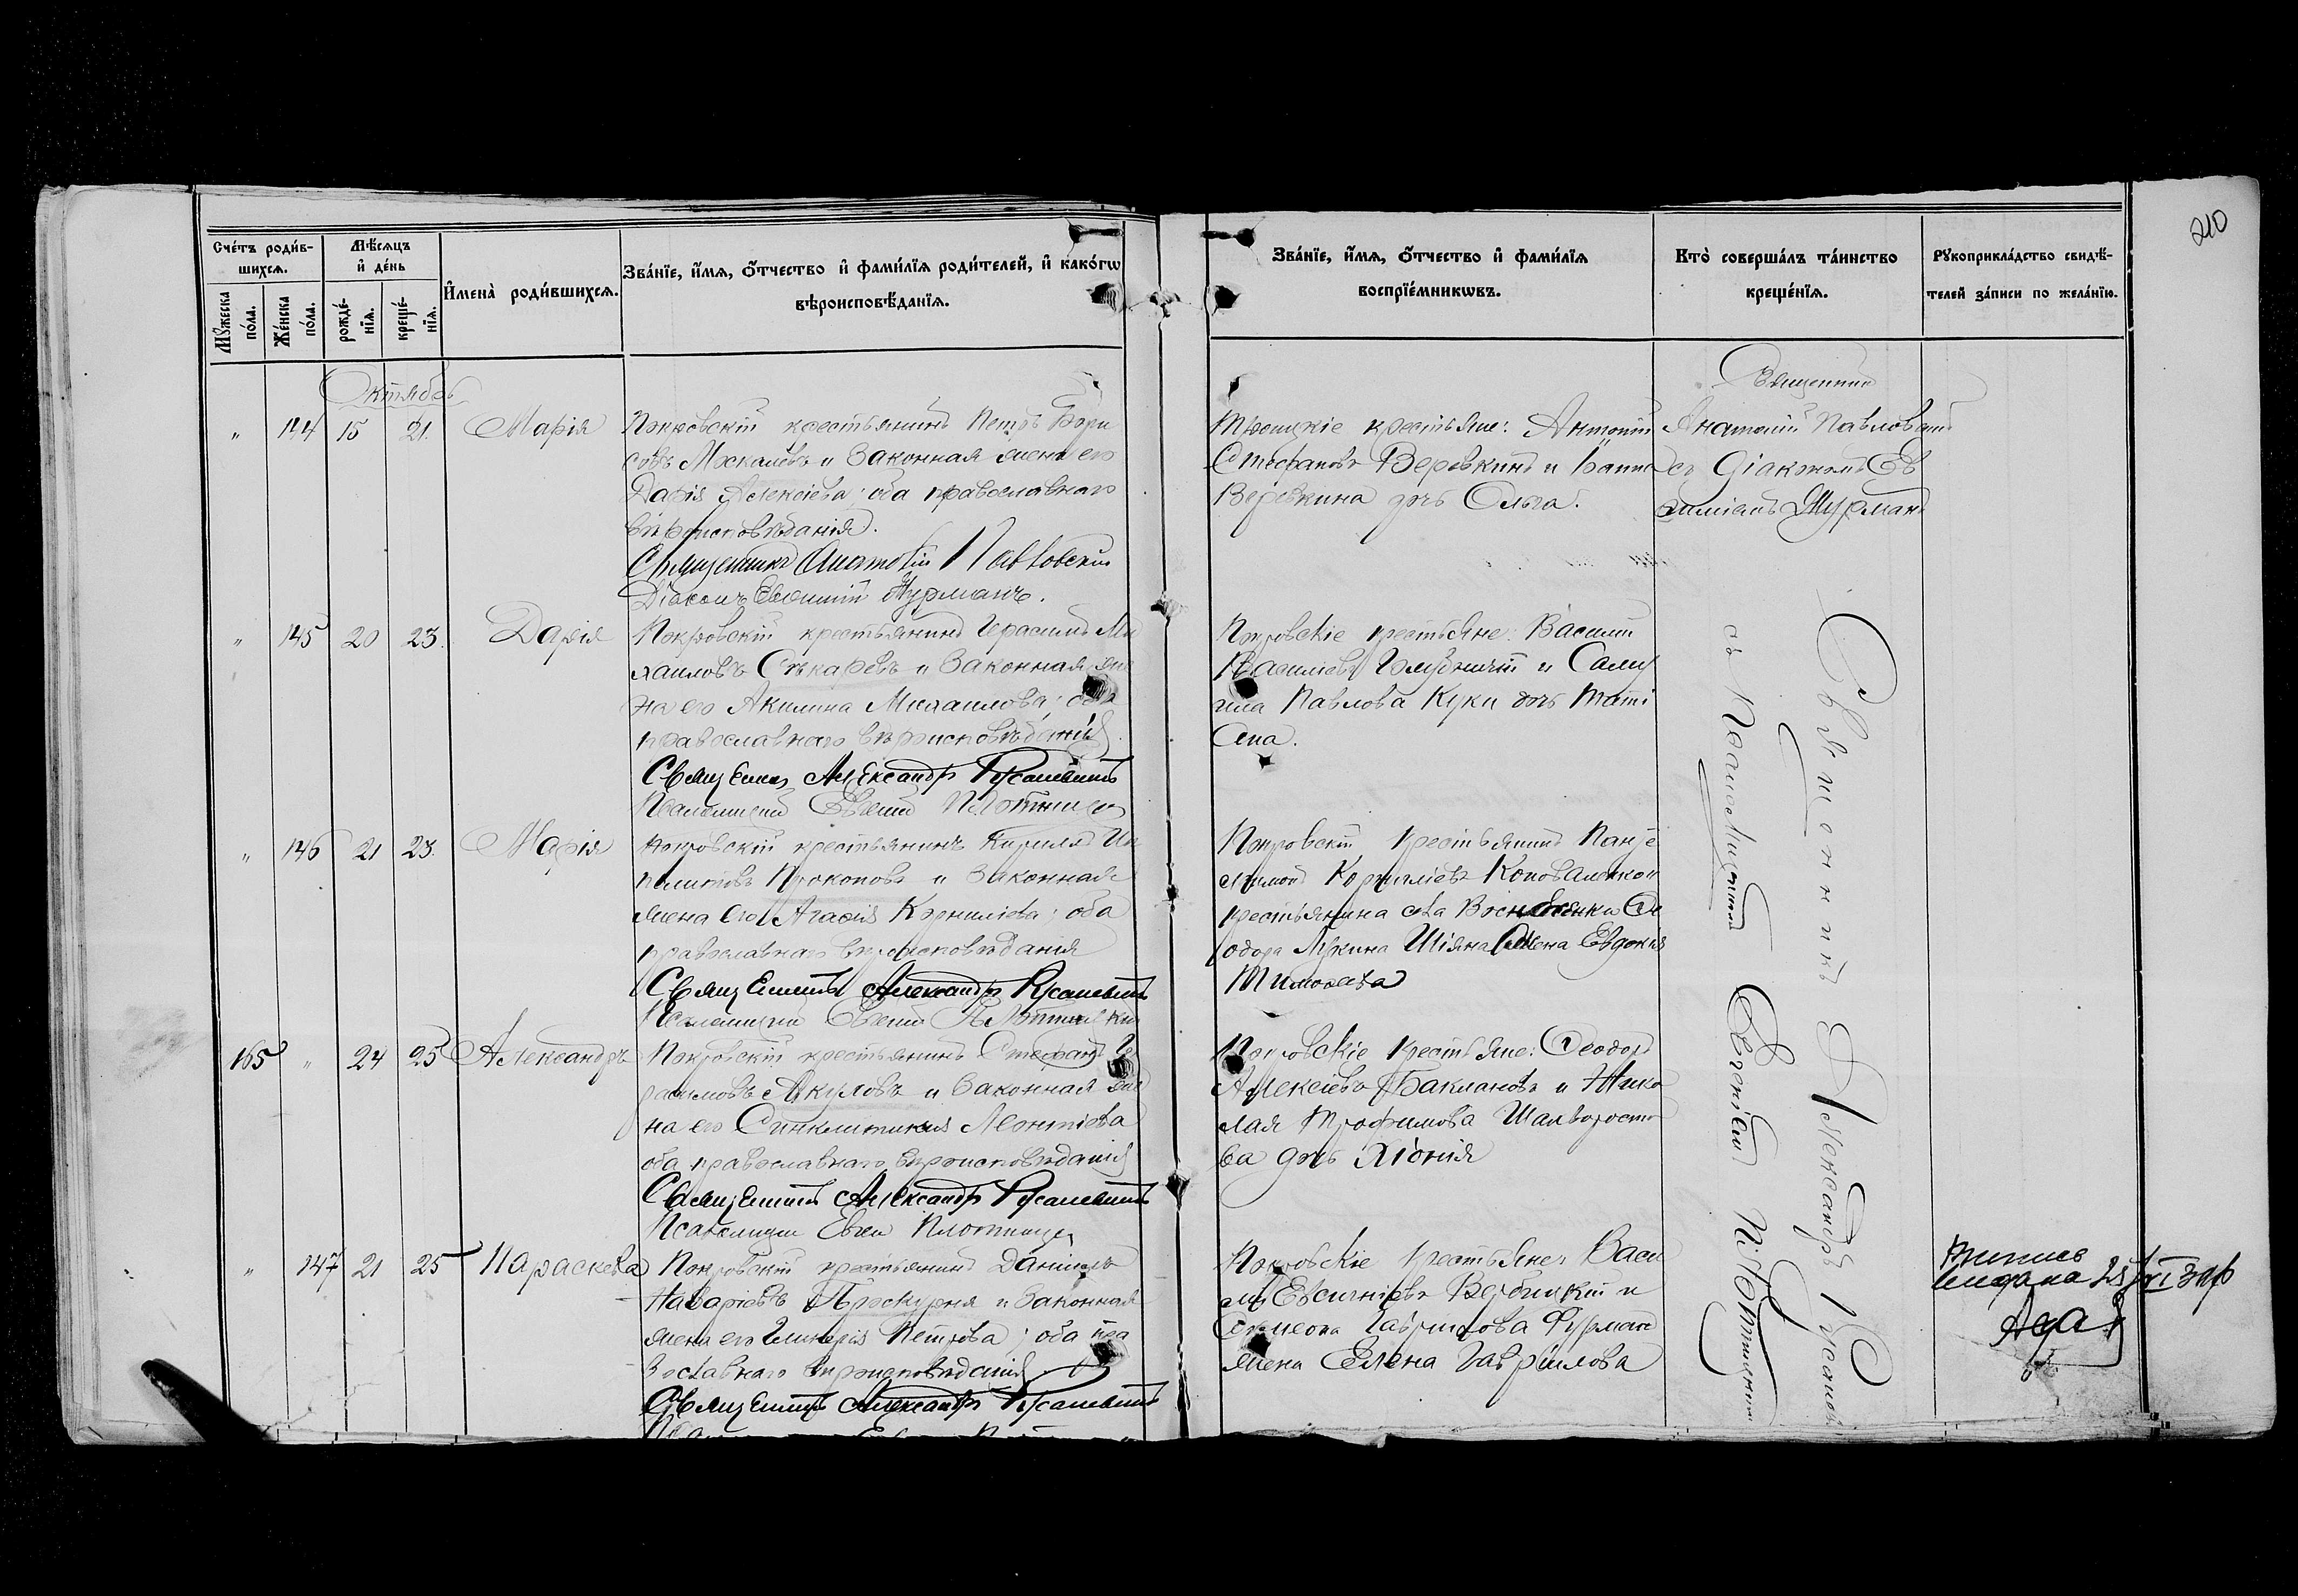 210
Счетъ родив-
шихся.
Мужеска
пола.
Женска
пола.
Мѣсяцъ
и день
рожде-
нія.
креще-
нія.
Имена родившихся.
Званіе, имя, отчество и фамилія родителей, и какогω
вѣроисповѣданія.
Званіе, имя, отчество и фамилія
воспріемникωвъ.
Кто совершалъ таинство
крещенія.
Рукоприкладство свидѣ-
телей записи по желанію.
Октябрь
" 144 15 21. Марія
Покровскій крестьянинъ Петръ Бори
совъ Москалевъ и законная жена его
Дарія Алексіева; оба православнаго
вѣроисповѣданія.
Священникъ Анатолій Павловскій
Діаконъ Евѳимій Журманъ.
Троицкіе крестьяне: Антоній
Стефановъ Веревкинъ и
Веревкина дочь Ольга.
Священникъ
Анатолій Павловскій
съ Діакономъ Ев
ѳиміемъ Журманъ
" 145 20 23. Дарія
Покровскій крестьянинъ Герасимъ Ми
хаиловъ Сѣкаревъ и законная же
на его Акилина Михаилова; оба
православнаго вѣроисповѣданія.
Священникъ Александръ Русаневичъ
Псаломщикъ Евгеній
Покровскіе крестьяне: Василій
Василіевъ и
Павлова Куки дочь
" 146 21 23. Марія
Покровскій крестьянинъ Кириллъ Ип
политовъ Прокоповъ и законная
жена его Агаѳія Корниліева; оба
православнаго вѣроисповѣданія
Священникъ Александръ Русаневичъ
Псаломщикъ Евгеній
Покровскій крестьянинъ Панте
леимонъ Корниліевъ Коноваленко и
крестьянина села Вознесенки Ѳе
одора Шіяна жена Евдокія
Тимоѳеева
165 " 24 25 Александръ
Покровскій крестьянинъ Стефанъ Ге
расимовъ Акуловъ и законная же
на его Синклитикія Леонтіева
оба православнаго вѣроисповѣданія
Священникъ Александръ Русаневичъ
Псаломщикъ Евгеній
Покровскіе крестьяне: Ѳеодоръ
Алексіевъ Баклановъ и Нико
лая Трофимова Шалворосто
ва дочь Хіонія
" 147 21 25 Параскева
Покровскій крестьянинъ Даніилъ
Назаріевъ Проскурня и законная
жена его Гликерія Петрова; оба пра
вославнаго вѣроисповѣданія
Священникъ Александръ Русаневичъ
Покровскіе крестьяне: Васи
лій Евсигніевъ Вербицкій и
Симеона Гавриилова Фурман
жена Елена Гавріилова
Священникъ Александръ Русаневичъ
съ Псаломщикомъ Евгеніемъ